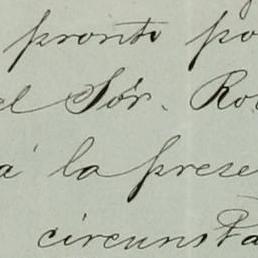 pronto po
el Sór. Ro
á la prese
circunsta